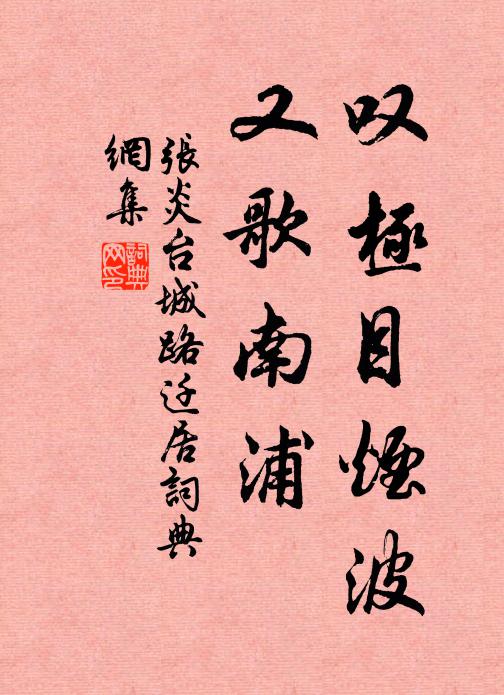 叹極目煙波
又歌南浦
張炎台城路迁居詞典
網集
詞典
网印